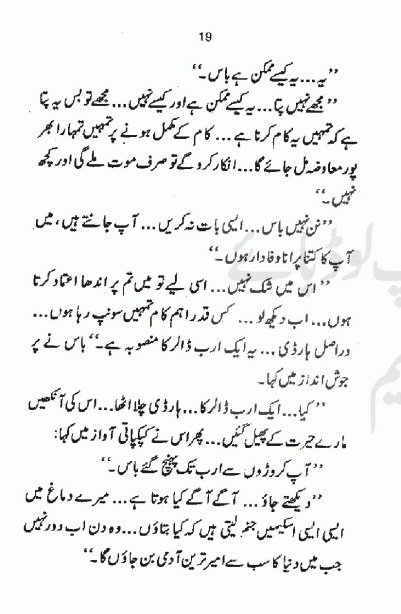 19
’’یہ... یہ کیسے ممکن ہے باس۔‘‘
’’مجھے نہیں پتا... یہ کیسے ممکن ہے اور کیسے نہیں... مجھے تو بس یہ پتا
ہے کہ تمہیں یہ کام کرنا ہے... کام کے مکمل ہونے پر تمہیں تمہارا بھر
پور معاوضہ مل جائے گا... انکار کرو گے تو صرف موت ملے گی اور کچھ
نہیں۔‘‘
’’نن نہیں باس... ایسی بات نہ کریں... آپ جانتے ہیں، میں
آپ کا کتنا پرانا وفادار ہوں۔‘‘
’’اس میں شک نہیں... اسی لیے تو میں تم پر اندھا اعتماد کرتا
ہوں... اب دیکھ لو... کس قدر اہم کام تمہیں سونپ رہا ہوں...
دراصل ہارڈی... یہ ایک ارب ڈالر کا منصوبہ ہے۔‘‘ باس نے پر
جوش انداز میں کہا۔
’’کیا... ایک ارب ڈالر کا... ہارڈی چلا اٹھا... اس کی آنکھیں
مارے حیرت کے پھیل گئیں... پھر اس نے کپکپاتی آواز میں کہا:
’’آپ کروڑوں سے ارب تک پہنچ گئے باس۔‘‘
’’دیکھتے جاؤ... آگے آگے کیا ہوتا ہے... میرے دماغ میں
ایسی ایسی اسکیمیں جنم لیتی ہیں کہ کیا بتاؤں... وہ دن اب دور نہیں
جب میں دنیا کا سب سے امیر ترین آدمی بن جاؤں گا۔‘‘